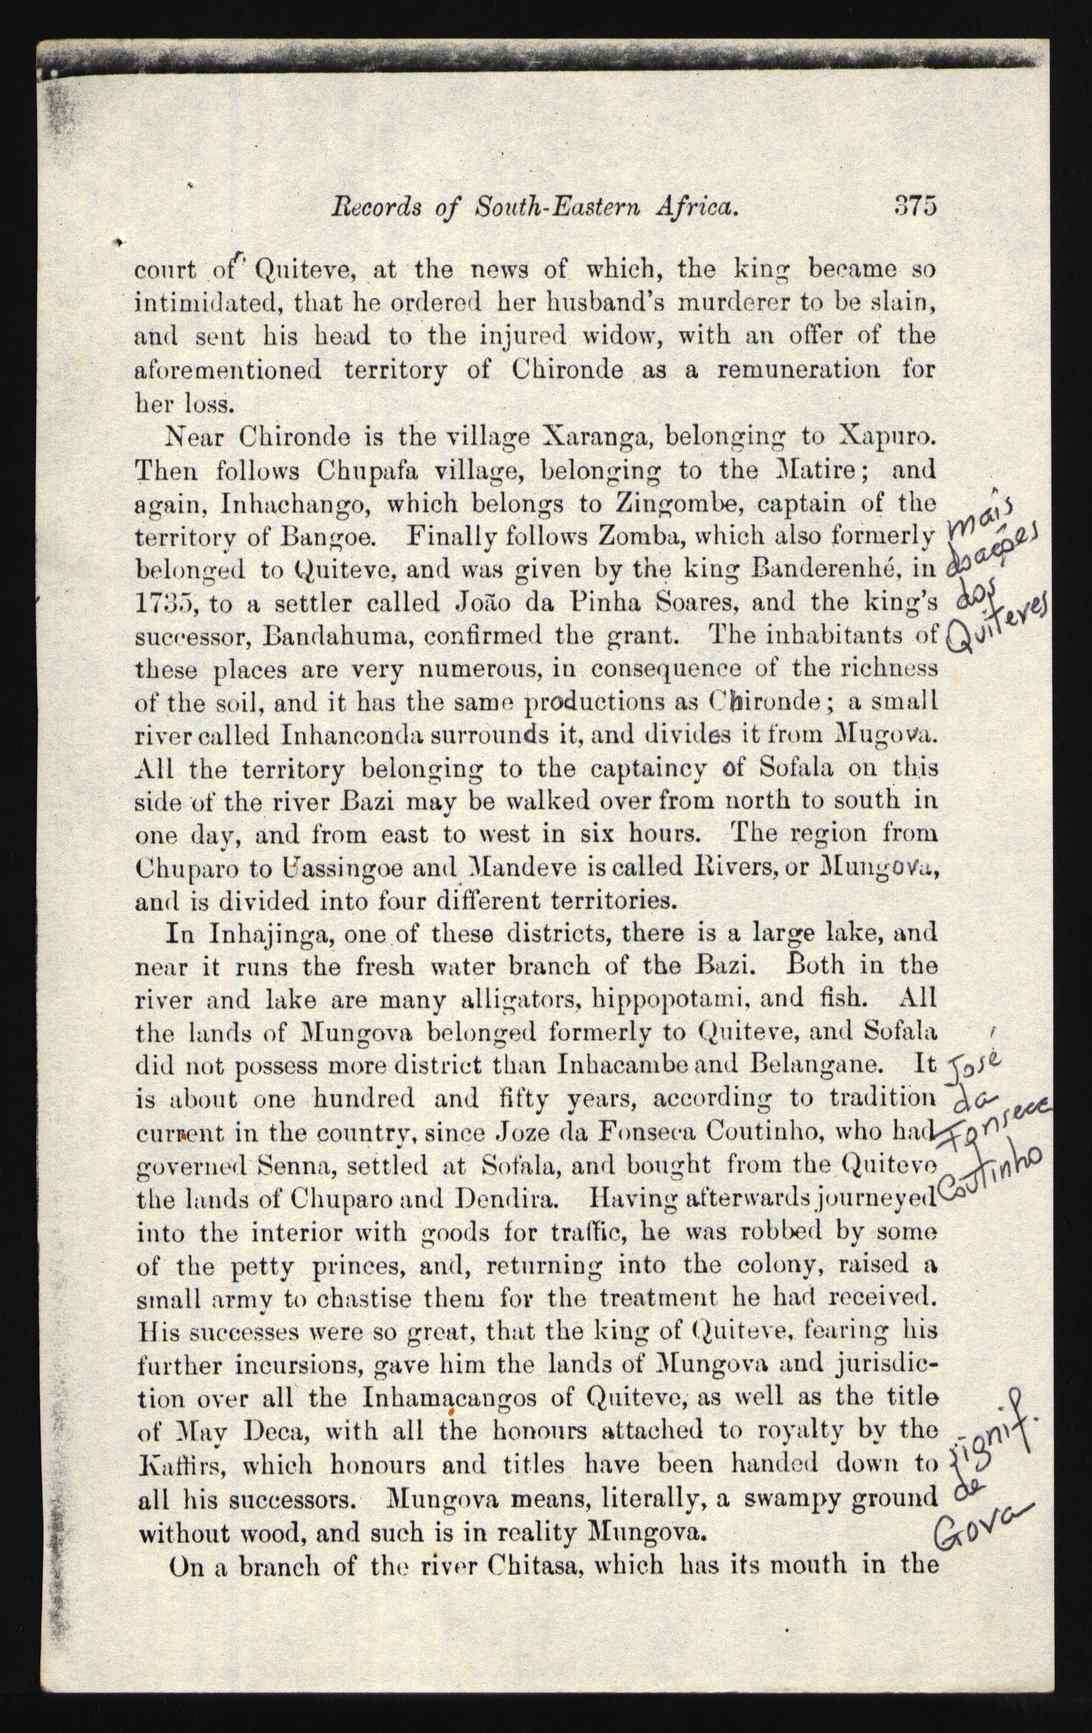 Records of South-Eastern Africa. 375
court of Quiteve, at the news of which, the king became so
intimidated, that he ordered her husband's murderer to be slain,
and sent his head to the injured widow, with an offer of the
aforementioned territory of Chironde as a remuneration for
her loss.
Near Chironde is the village Xaranga, belonging to Xapuro.
Then follows Chupafa village, belonging to the Matire; and
again, Inhachango, which belongs to Zingombe, captain of the
territory of Bangoe. Finally follows Zomba, which also formerly
belonged to Quiteve, and was given by the king Banderenhé, in
1735, to a settler called João da Pinha Soares, and the king's
successor, Bandahuma, confirmed the grant. The inhabitants of
these places are very numerous, in consequence of the richness
of the soil, and it has the same productions as Chironde; a small
river called Inhanconda surrounds it, and divides it from Mugova.
All the territory belonging to the captaincy of Sofala on this
side of the river Bazi may be walked over from north to south in
one day, and from east to west in six hours. The region from
Chuparo to Uassingoe and Mandeve is called Rivers, or Mungova,
and is divided into four different territories.
In Inhajinga, one of these districts, there is a large lake, and
near it runs the fresh water branch of the Bazi. Both in the
river and lake are many alligators, hippopotami, and fish. All
the lands of Mungova belonged formerly to Quiteve, and Sofala
did not possess more district than Inhacambe and Belangane. It
is about one hundred and fifty years, according to tradition
current in the country, since Joze da Fonseca Coutinho, who had
governed Senna, settled at Sofala, and bought from the Quiteve
the lands of Chuparo and Dendira. Having afterwards journeyed
into the interior with goods for traffic, he was robbed by some
of the petty princes, and, returning into the colony, raised a
small army to chastise them for the treatment he had received.
His successes were so great, that the king of Quiteve, fearing his
further incursions, gave him the lands of Mungova and jurisdic-
tion over all the Inhamaçangos of Quiteve, as well as the title
of May Deca, with all the honours attached to royalty by the
Kaffirs, which honours and titles have been handed down to
all his successors. Mungova means, literally, a swampy ground
without wood, and such is in reality Mungova.
On a branch of the river Chitasa, which has its mouth in the
mais
doações
dos
Quiteves
José
da
Fonseca
Coutinho
signif.
de
Gova